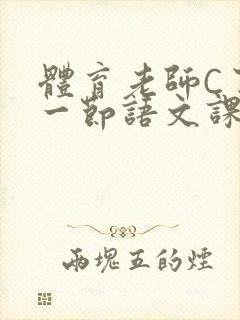 體育老師C
一節語文課
兩塊五的煙